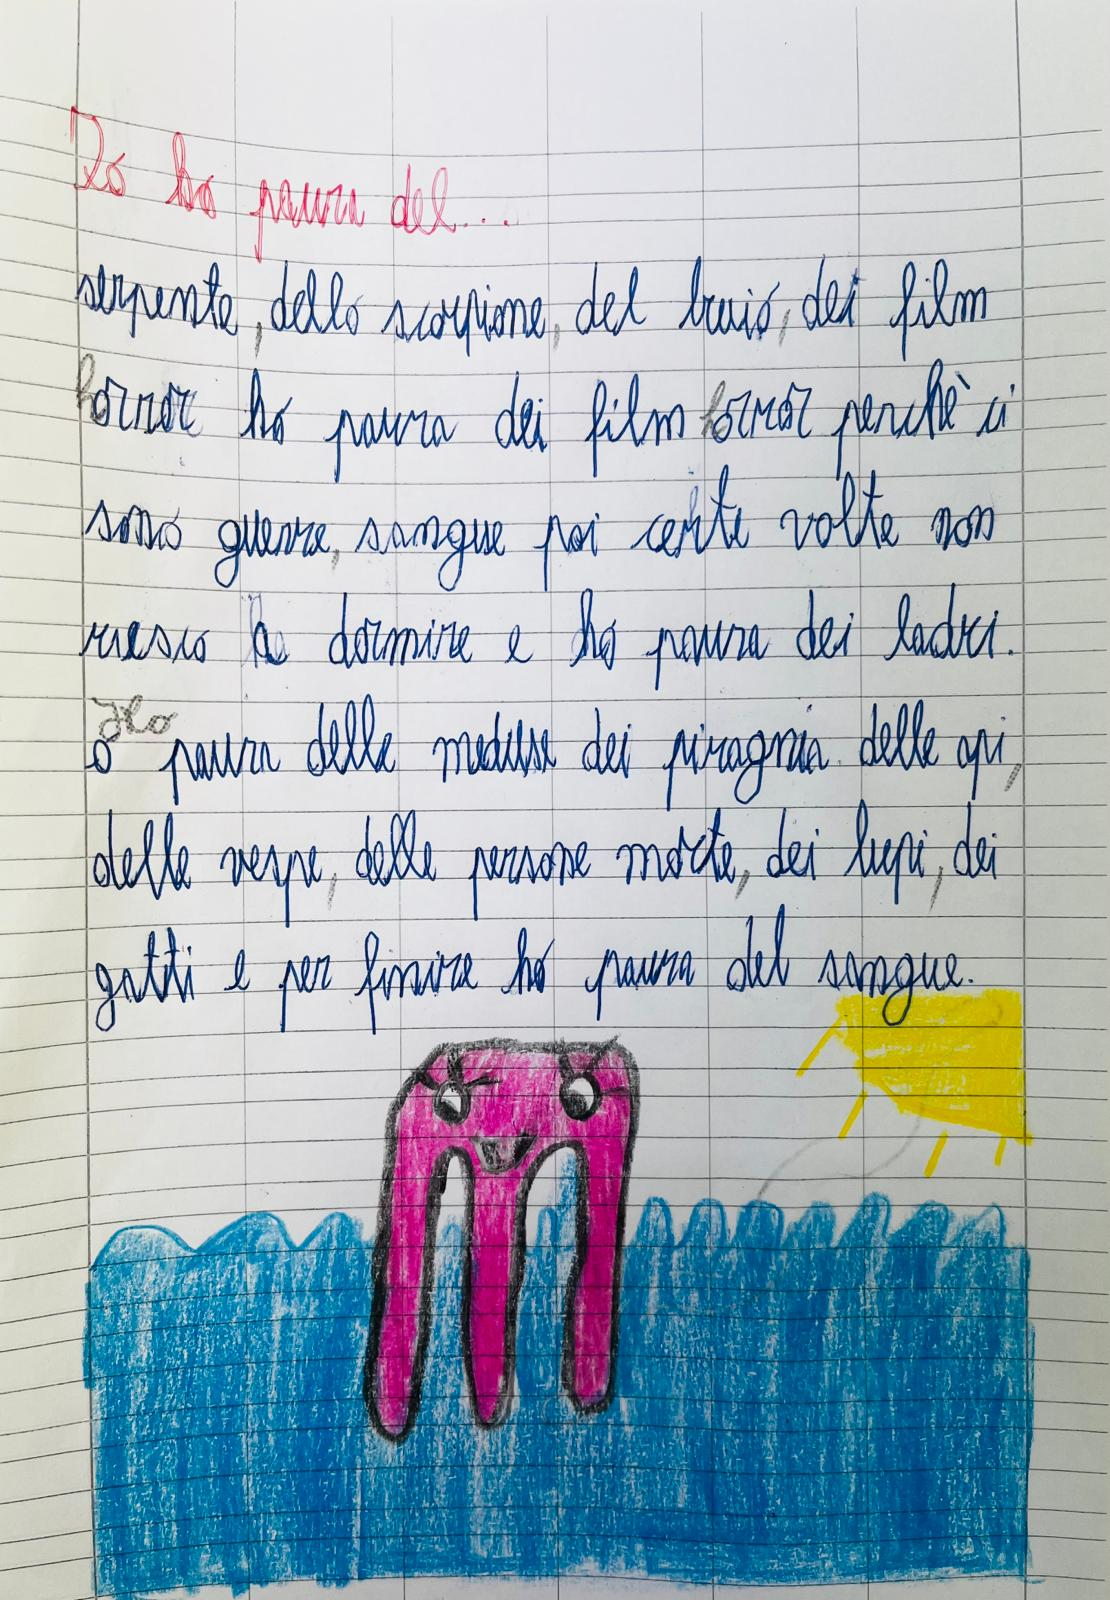 Io ho paura del...
serpente, dello scorpione, del buio, dei film
horror ho paura dei film horror perchè ci
sono guerre, sangue poi certe volte non
riesco a dormire e ho paura dei ladri.
Ho
o paura delle meduse dei piragnia delle api,
delle vespe, delle persone morte, dei lupi, dei
gatti e per finire ho paura del sangue.